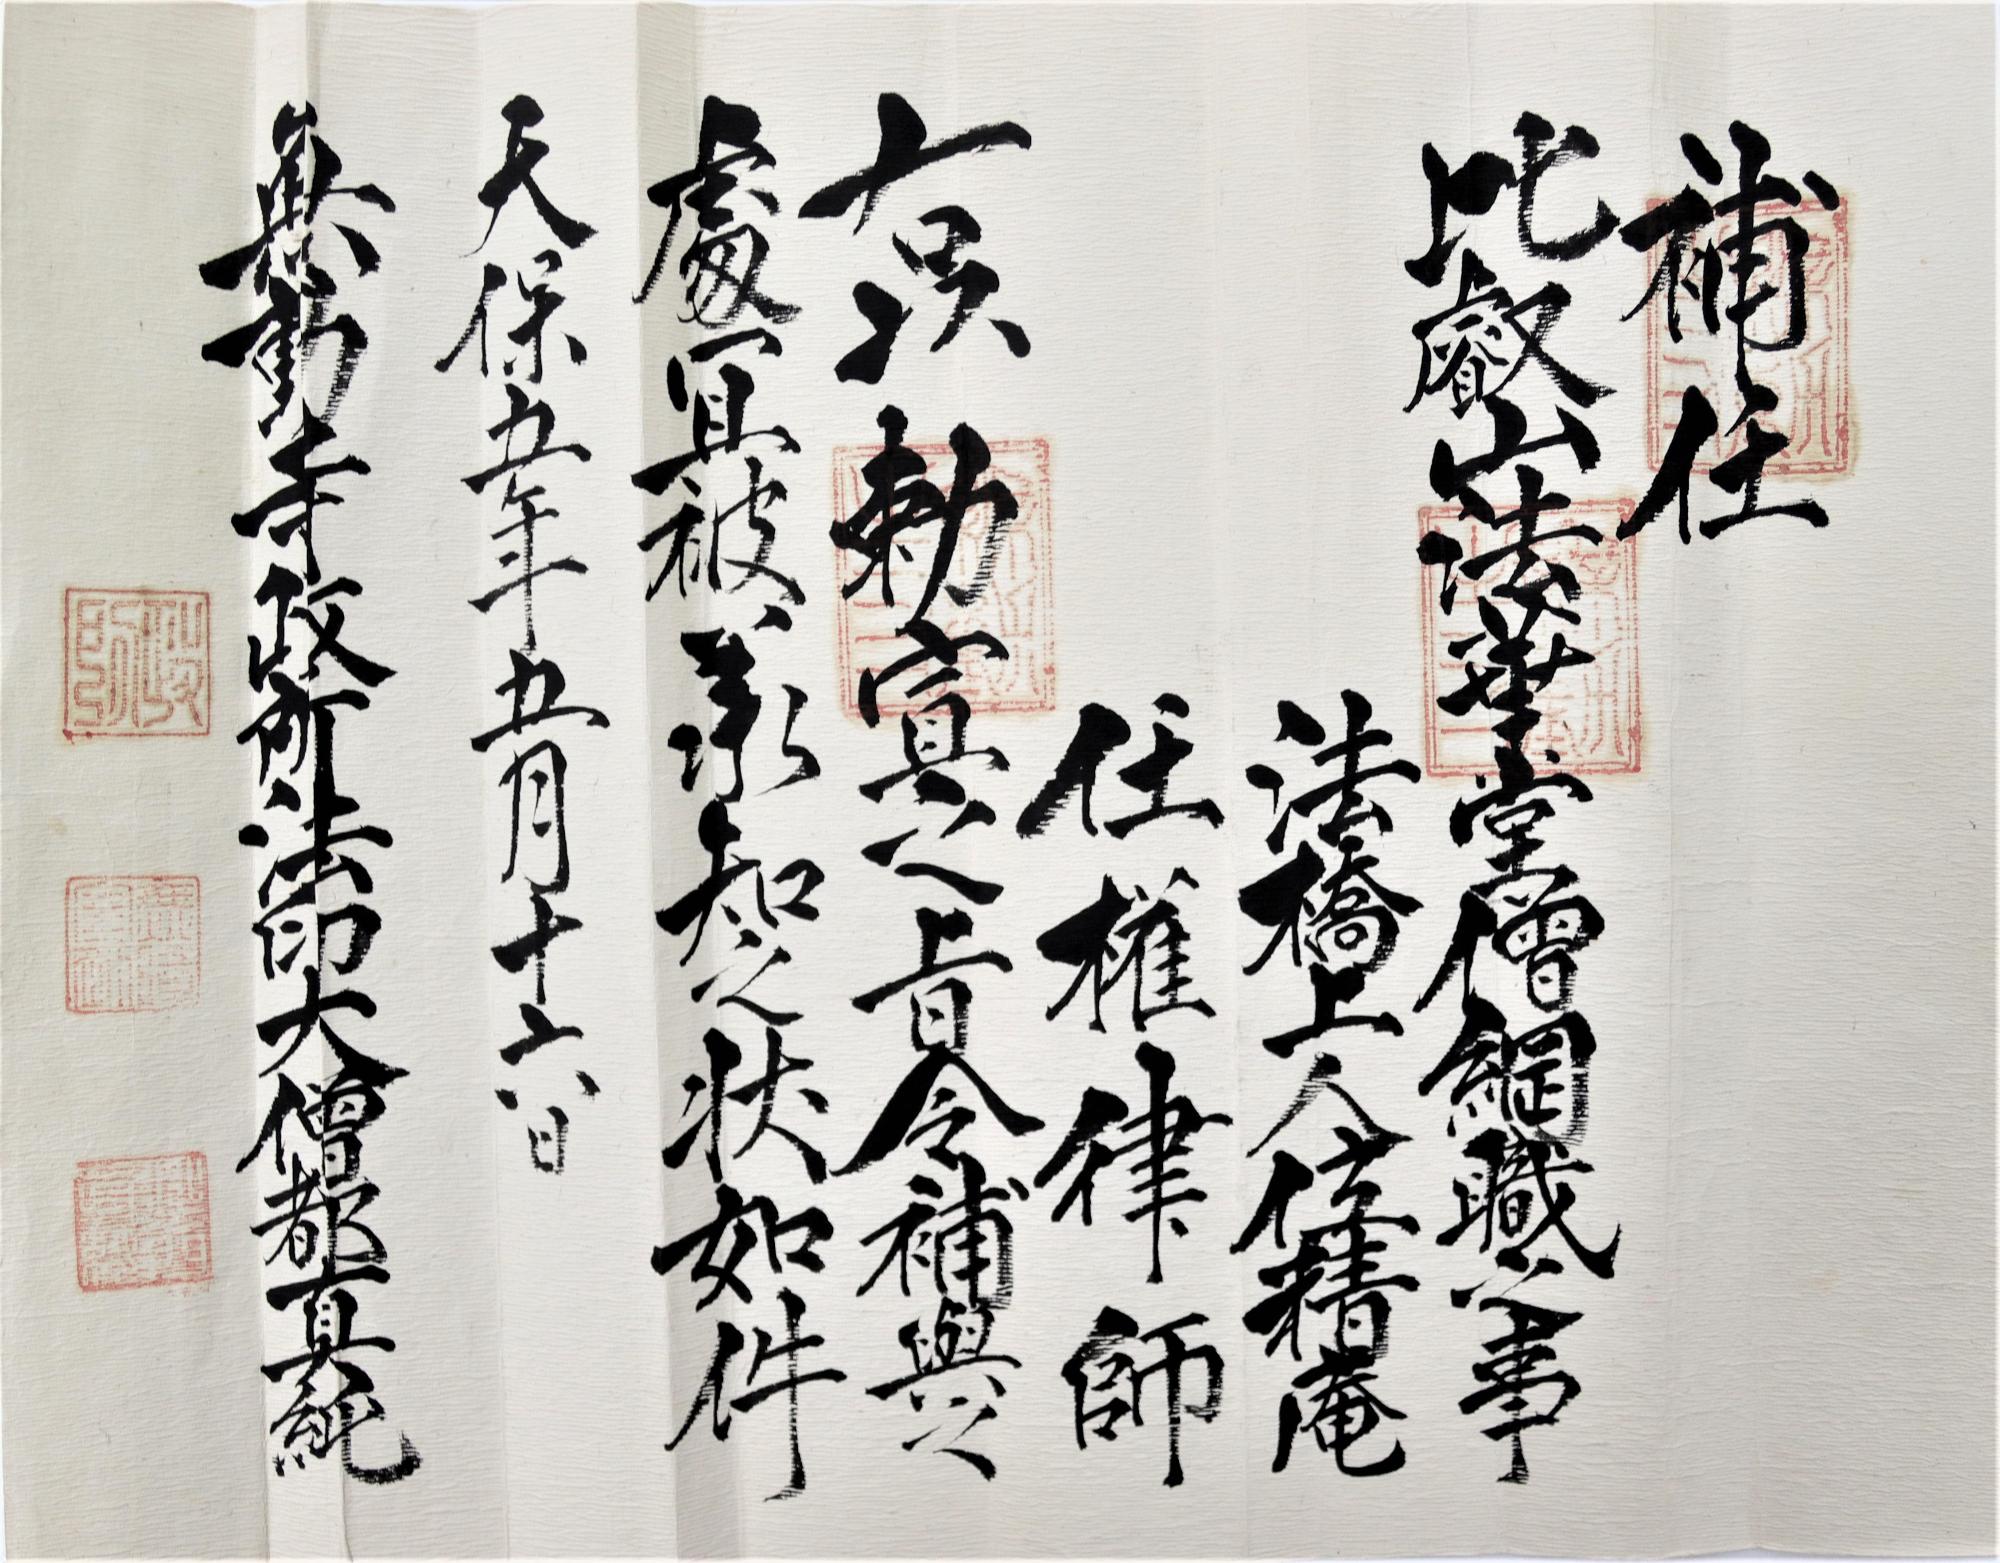 補任
比叡山法華堂僧綱職之事
法橋上人位精庵
任權律師
右 勅宣之旨令補與之
處宜被承知之状如件
天保五年五月十六日
無動寺政所法印大僧都真純